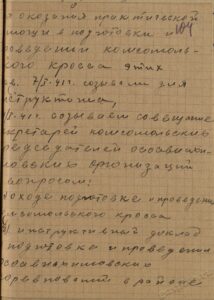 и оказания практической
мощи в подготовке и 104
оведении комсомоль-
кого кросса этих
7/V-41г. созываем для
структажа,
V-41г. созываем совещание
кретарей комсомольских
редседателей осоавиа-
мовских организаций
вопросом:
ходе подготовке и проведен
мсомольского кросса
инструктивный доклад
подготовка и проведении
соавиахимовских
оревнований в районе